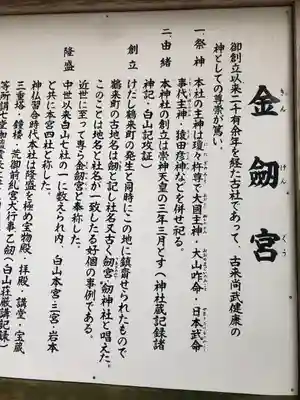 金劔宮
きんけんぐう
御創立以来二千有余年を経た古社であって、古来尚武健康の
神としての尊崇が篤い。
一、祭神 本社の主神は瓊々杵尊で大国主神・大山咋命・日本武命
事代主神・猿田彦神などを併せ祀る。
二、由緒 本神社の創立は崇神天皇の三年三月とす(神社蔵記録諸
神記・白山記攷証)
創立 けだし鶴来町の発生と同時にこの地に鎮齋せられたもので
鶴来町の古地名は劔と記し社名又も劔宮・劔神社と唱えた。
このことは地名と社名が一致したる好個の事例である。
近世に至って専ら金劔宮と奉称した。
隆盛 中世以来白山七社の一に数えられ内、白山本宮・三宮・岩本
と共に本宮四社と称した。
神仏習合時代本社は隆盛を極め宝物殿・拝殿・講堂・宝蔵
三重塔・鐘楼・荒御前
等所謂七堂
(白山荘厳講記録)